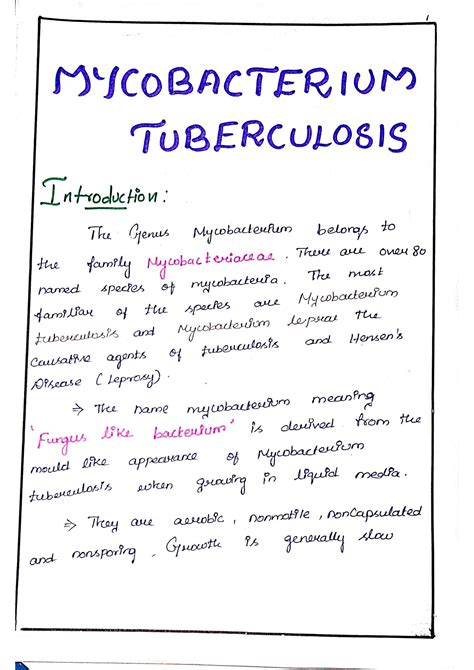 MYCOBACTERIUM
TUBERCULOSIS
Introduction:
The Genus Mycobacterium belongs to
the family Mycobacteriaceae. There are over 80
named species of mycobacteria. The most
familiar of the species are Mycobacterium
tuberculosis and Mycobacterium leprae the
causative agents of tuberculosis and Hensen's
Disease (Leprosy).
⇒ The name mycobacterium meaning
'Fungus like bacterium' is derived from the
mould like appearance of Mycobacterium
tuberculosis when growing in liquid media.
⇒ They are aerobic, nonmotile, noncapsulated
and nonsporing. Growth is generally slow